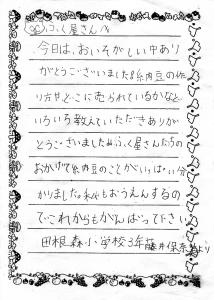 ふく屋さんへ
今日は、おいそがしい中あり
がとうございました。納豆の作
り方やどこに売られているかなど
いろいろ教えていただきありが
とうございました。ふく屋さんたちの
おかげで納豆のことがいっぱい分
かりました。私もおうえんするの
でこれからもがんばって下さい
田根森小学校3年藤井保奈より